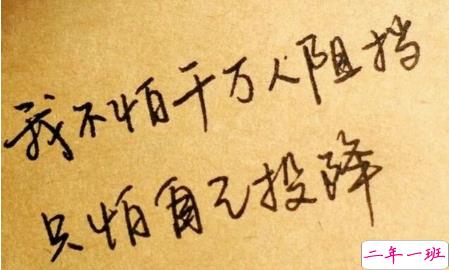 我不怕千万人阻挡
只怕自己投降
二年一班